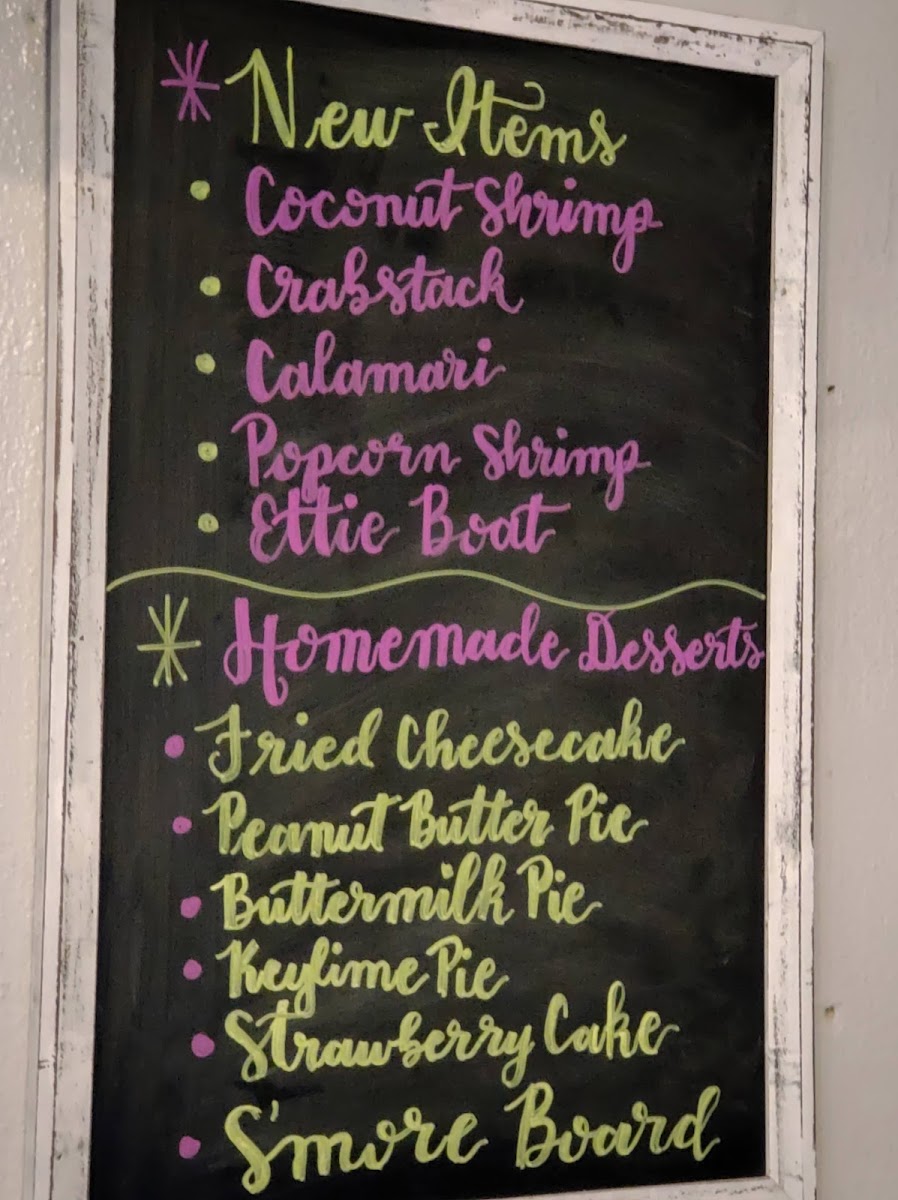 New Items
Coconut Shrimp
Crabstack
Calamari
Popcorn Shrimp
Ettie Boat
Homemade Desserts
Fried Cheesecake
Peanut Butter Pie
Buttermilk Pie
Keylime Pie
Strawberry Cake
S'more Board